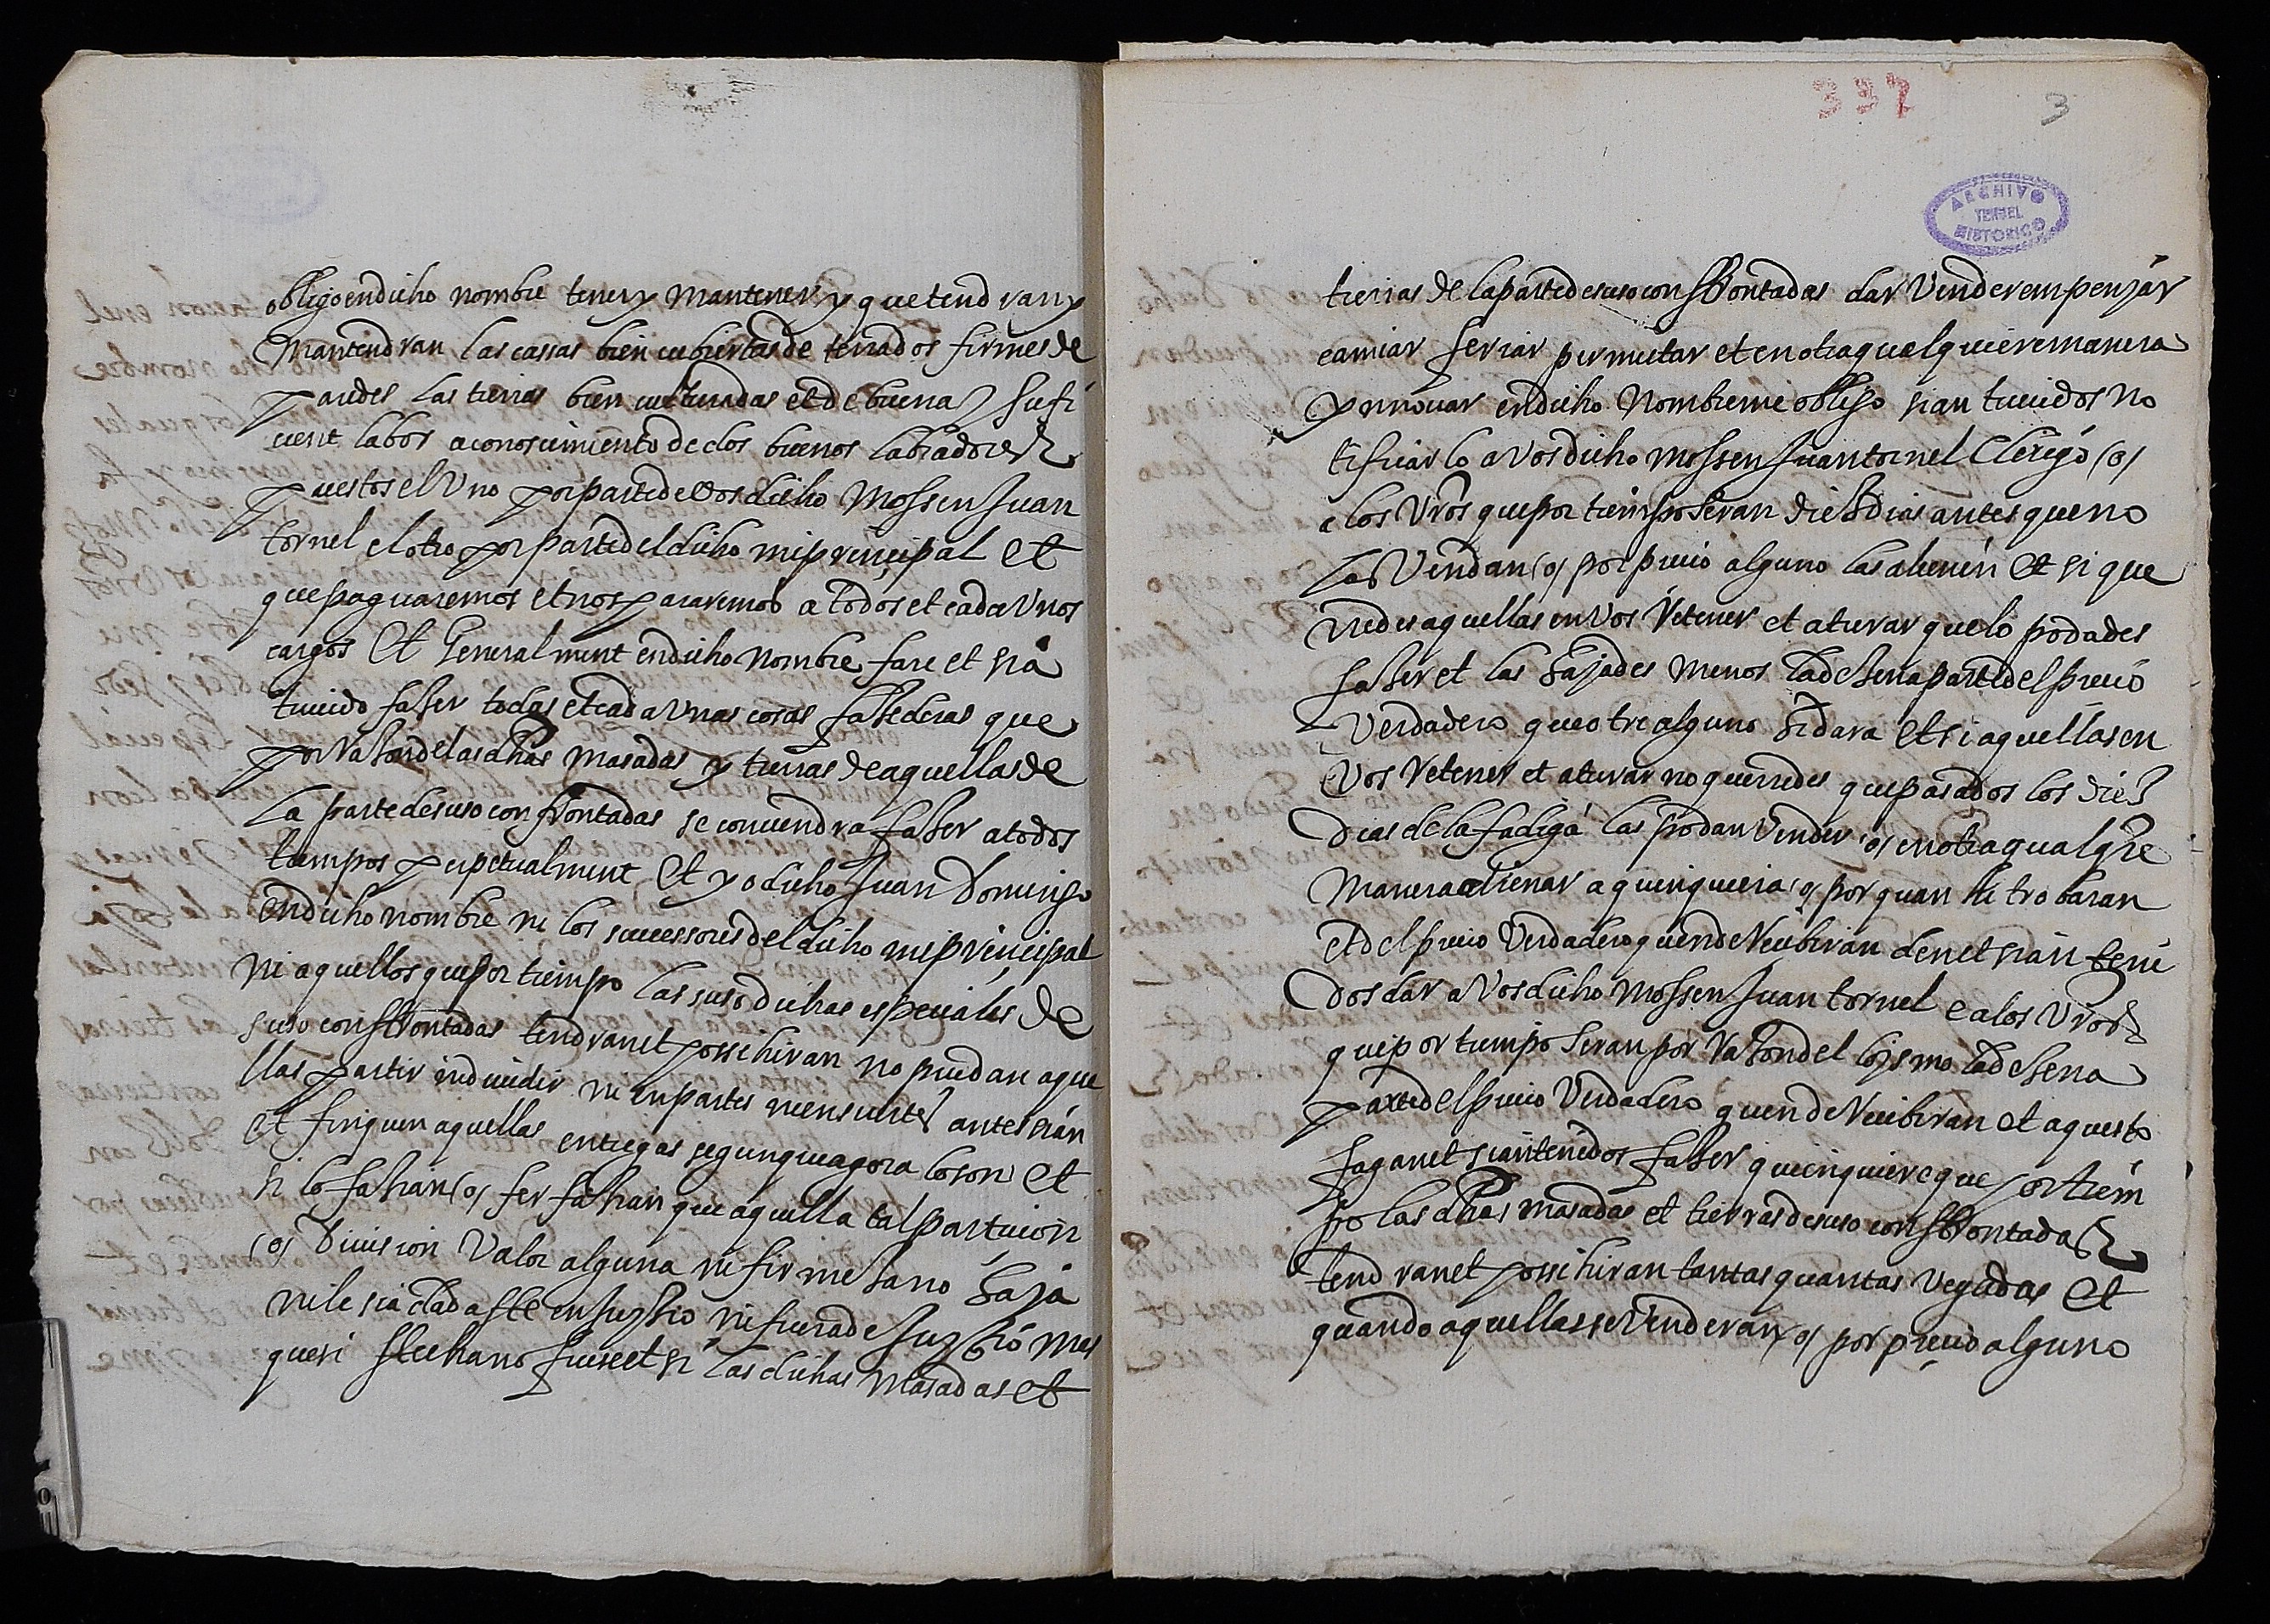 obligo en dicho nombre tener y mantener y que tendran y
Mantendran las cassas bien cubiertas de terrados firmes de
paredes las tierras bien cultiuadas et de buena y sufi
cient labor a conoscimiento de dos buenos labradores
puestos el Uno por parte de Vos dicho Mossen Juan
tornel el otro por parte del dicho mi principal et
que paguaremos et nos pararemos a todos et cada Unos
cargos Et Generalment en dicho nombre fare et sia
tenido faser todas et cada Unas cosas fasederas que
por Razon de las dhas masadas y tierras de aquellas de
la parte de suso confrontadas se conuendra faser a todos
tiempos perpetualment Et yo dicho Juan Domingo
en dicho nombre ni los successores del dicho mi principal
ni aquellos que por tiempo las suso dichas especiales de
suso confrontadas tendran et possehiran no puedan aque
llas partir ni diuidir ni en partes ni en suertes antes sian
et finquen aquellas entregas segun que agora lo son et
si lo fahian (o) fer fahian que aquella tal particion
(o) Diuision Valor alguna ni firmeza no haja
ni le sia dada ffe en Juyzio ni fuera de Juyzio mes
que si ffecha no fuese et si las dichas Masadas et
337
3
ARCHIVO
TERUEL
HISTORICO
tierras de la parte de suso confrontadas dar Vender empenjar
camiar feriar permutar et en otra qualquiere manera
ynnouar en dicho Nombre me obligo sian tenidos no
tificarlo a vos dicho mossen Juan tornel Clerigo (o)
a los Vros que por tiempo seran diez dias antes que no
las Vendan (o) por precio alguno las alienen et si que
rredes aquellas en vos Retener et aturar que lo podades
faser et las hajades menos la dezena parte del precio
Verdadero que otre alguno hi dara et si aquellas en
Vos Retener et aturar no querredes que pasados los diez
Dias de la fadiga las podan Vender (o) en otra qualqre
Manera alienar a quienquiera (o) por quan hi trobaran
et del precio Verdadero que ende Recibiran den et sian teni
dos dar a Vos dicho mossen Juan tornel e a los Vros
que por tiempo seran por Razon del loysmo la dezena
parte del precio Verdadero que ende Recibiran et aquesto
fagan et sian tenidos faser quienquiere que por tiem
po las dhas masadas et tierras de suso confrontadas
tendran et possehiran tantas quantas vegadas et
quando aquellas se Venderan (o) por precio alguno